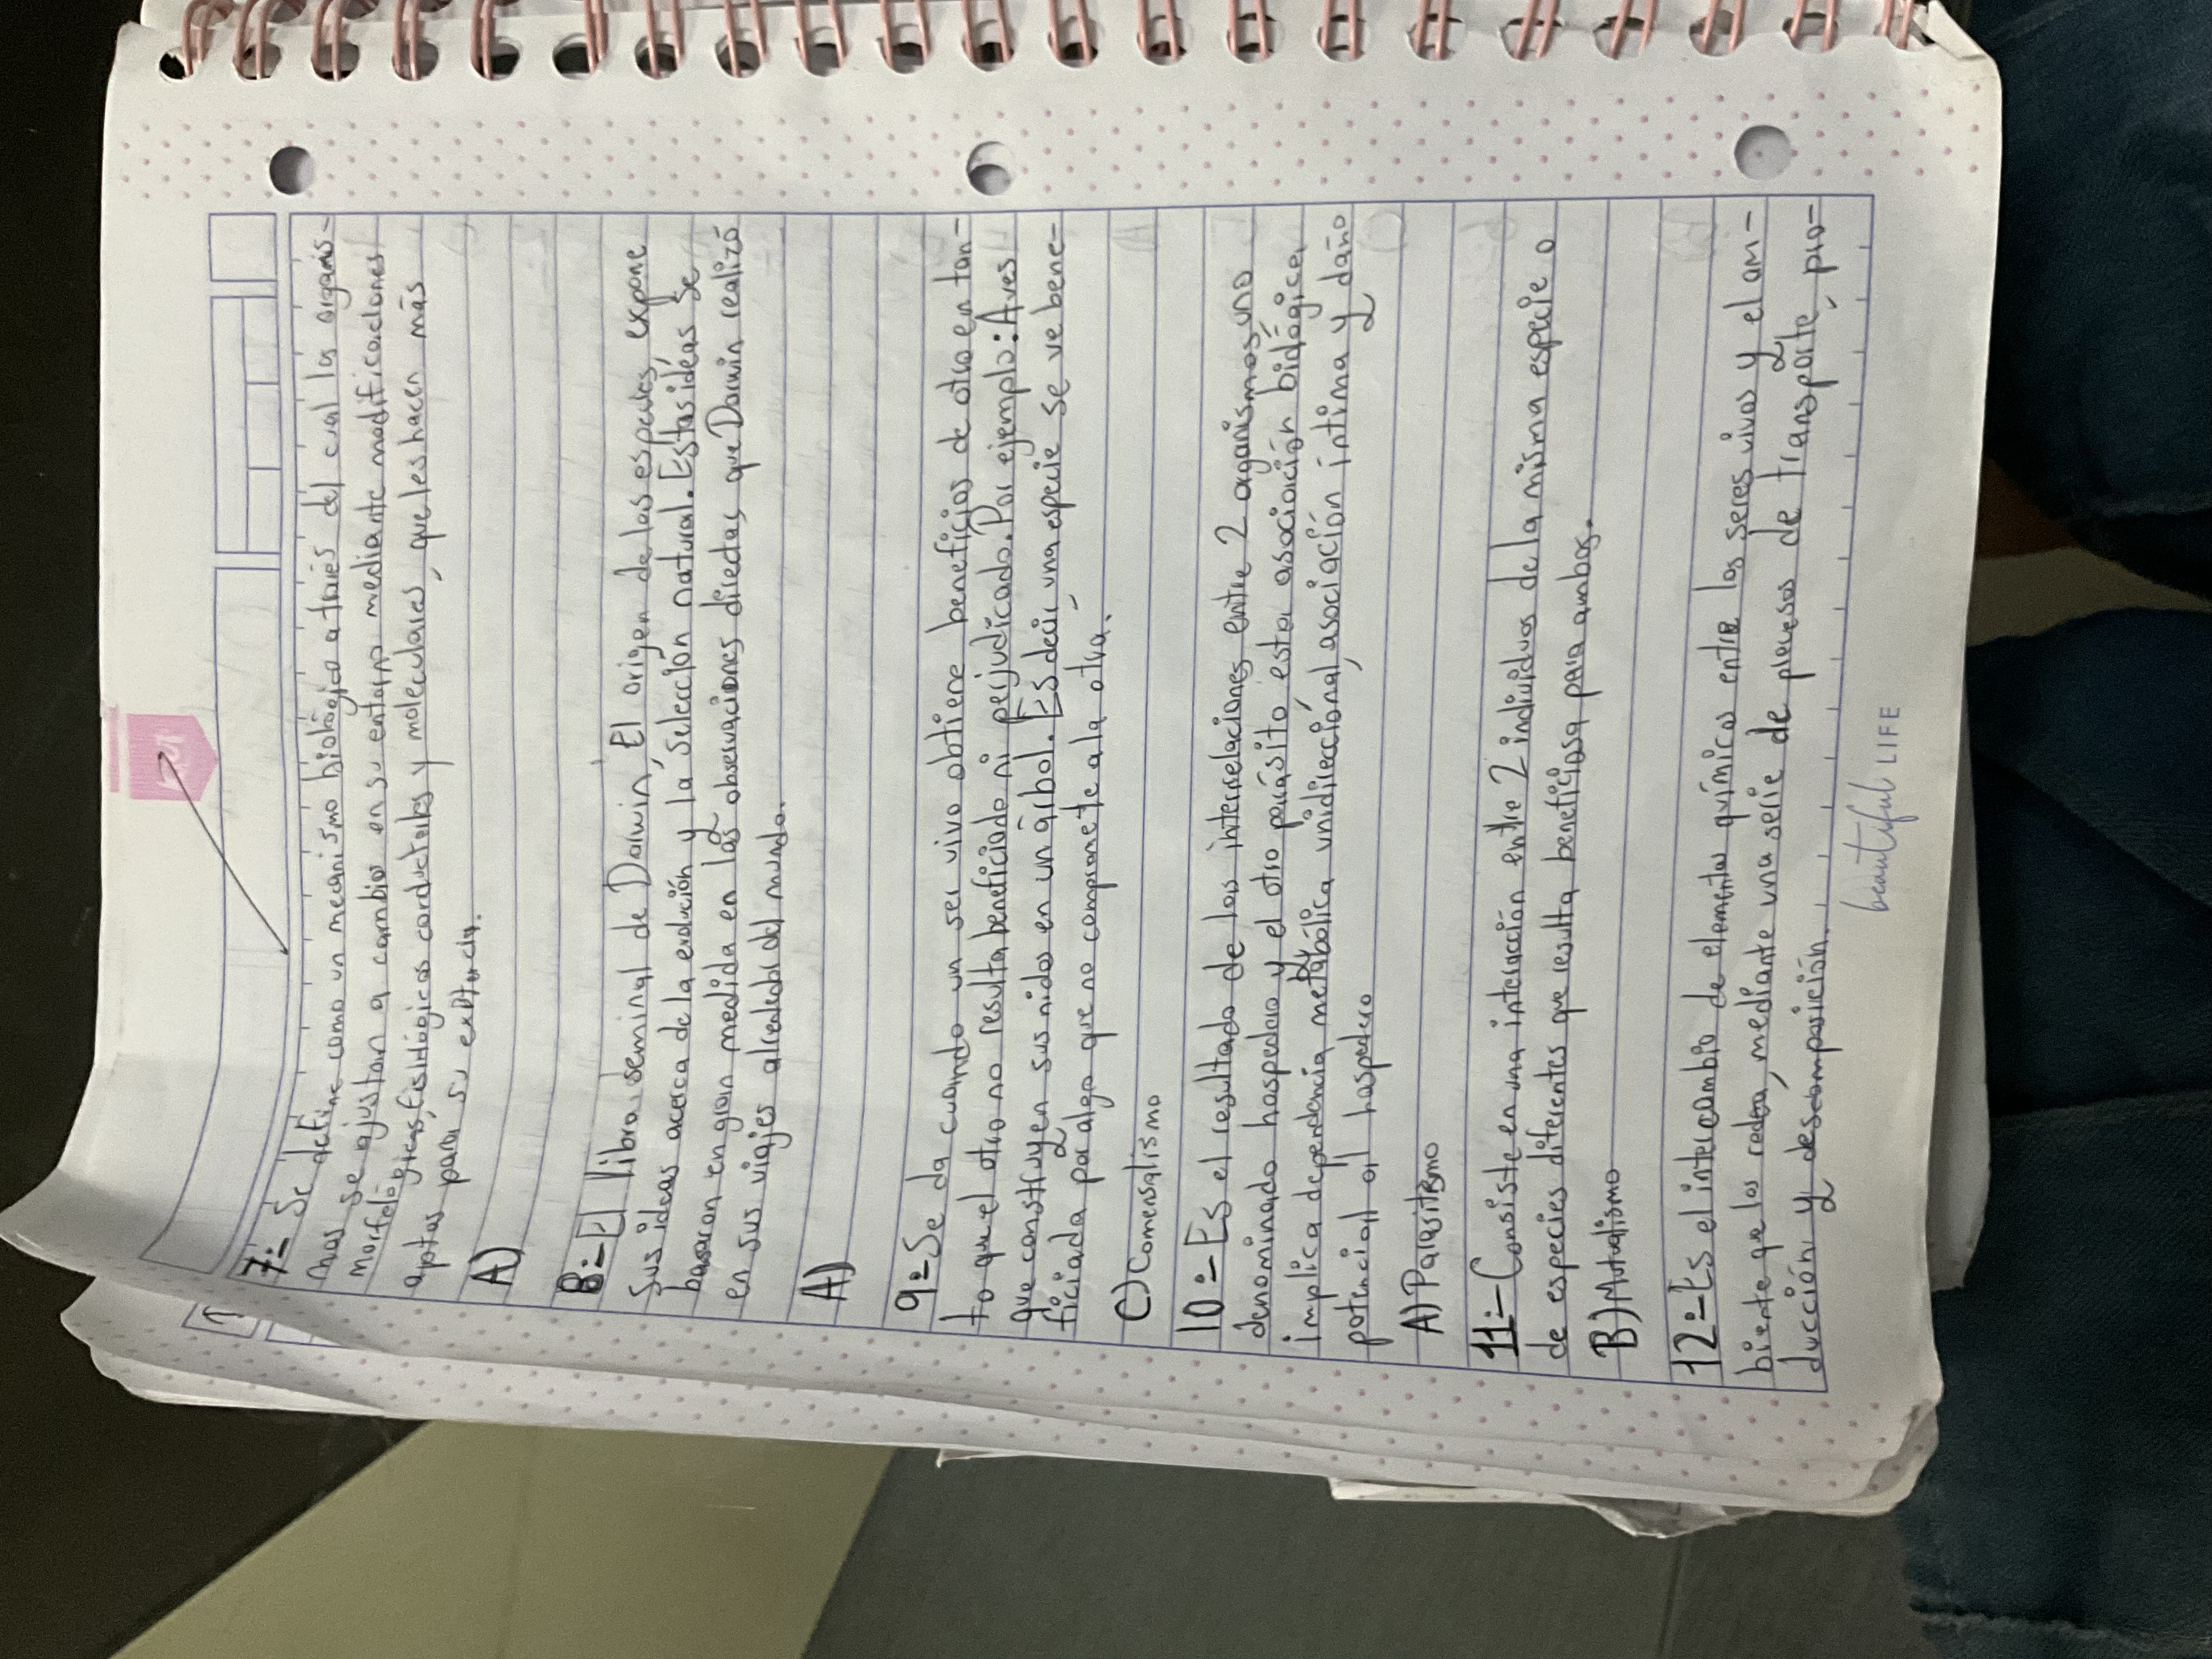 7:- Se define como un mecanismo biológico a través del cual los organis-
mos se ajustan a cambios en su entorno mediante modificaciones
morfológicas, fisiológicas conductuales y moleculares, que les hacen más
aptos para su
A)
8:- El libro seminal de Darwin, El origen de las especies, expone
sus ideas acerca de la evolución y la selección natural. Estas ideas se
basaron en gran medida en las observaciones directas que Darwin realizó
en sus viajes alrededor del mundo.
A)
9:- Se da cuando un ser vivo obtiene beneficios de otro en tan-
to que el otro no resulta beneficiado ni perjudicado. Por ejemplo: Aves
que construyen sus nidos en un árbol. Es decir una especie se ve bene-
ficiada por algo que no compromete a la otra.
C) Comensalismo
10:- Es el resultado de las interrelaciones entre 2 organismos, uno
denominado hospedaro y el otro parásito esta asociación biológica,
implica dependencia metabólica unidireccional, asociación íntima y daño
potencial al hospedero
A) Parasitismo
11:- Consiste en una interacción entre 2 individuos de la misma especie o
de especies diferentes que resulta beneficiosa para ambos.
B) Mutualismo
12:- Es el intercambio de elementos químicos entre los seres vivos y el am-
biente que los rodea, mediante una serie de procesos de transporte, pro-
ducción y descomposición.
beautiful LIFE